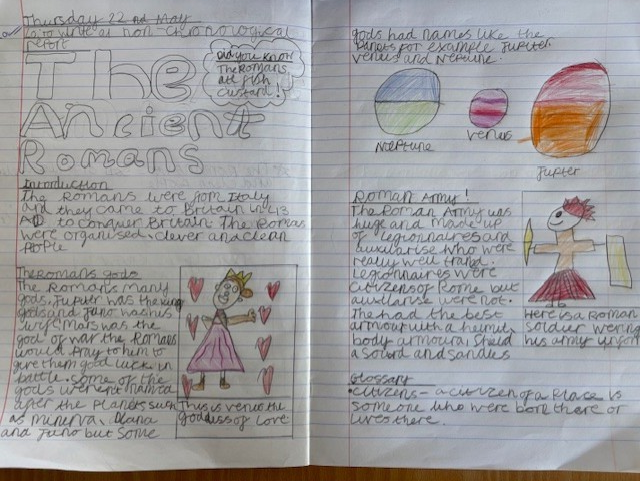 Thursday 22nd May
to write a non-chronological
report
The
Ancient
Romans
Did you know
The Romans
ate fish
custard!
Introduction
The Romans were from Italy
and they came to Britain in 43
AD to conquer Britain. The Romans
were organised, clever and clean
People
The Romans gods
The Romans many
gods. Jupiter was the king
gods and Juno was his
wife. Mars was the
god of war the Romans
would Pray to them to
give them good luck in
battle. Some of the
gods were not named
after the Planets such
as minerva, Diana
and Juno but some
This is venus the
goddess of Love
gods had names like the
Planets for example Jupiter,
venus and Neptune.
Neptune
venus
Jupiter
Roman Army!
The Roman Army was
huge and made up
of legionnaires and
auxiliarise who were
really well traind.
Legionnaires were
citizens of Rome but
auxiliarise were not.
The had the best
armour with a helmet,
body armoura, Sheild
a sword and sandles
Here is a Roman
soldier wering
his army
Glossary
• Citizens - a citizen of a Place is
someone who were born there or
lives there.